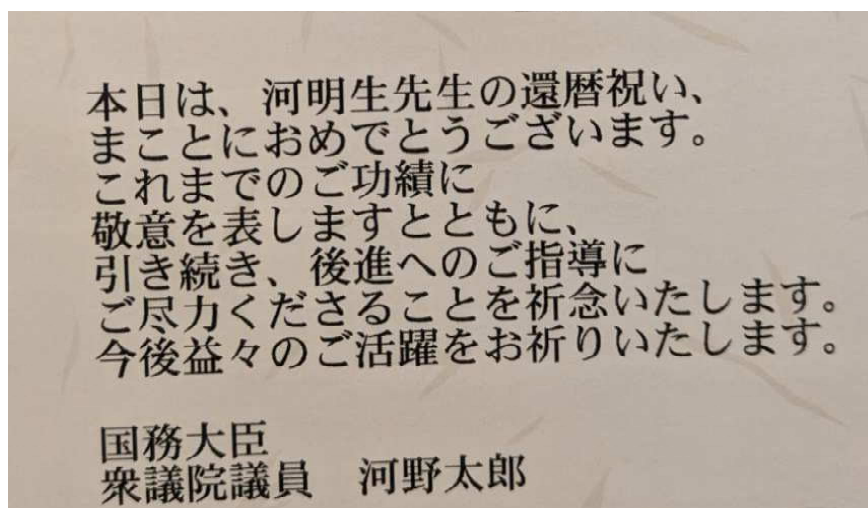 本日は、河明生先生の還暦祝い、
まことにおめでとうございます。
これまでのご功績に
敬意を表しますとともに、
引き続き、後進へのご指導に
ご尽力くださることを祈念いたします。
今後益々のご活躍をお祈りいたします。
国務大臣
衆議院議員　河野太郎